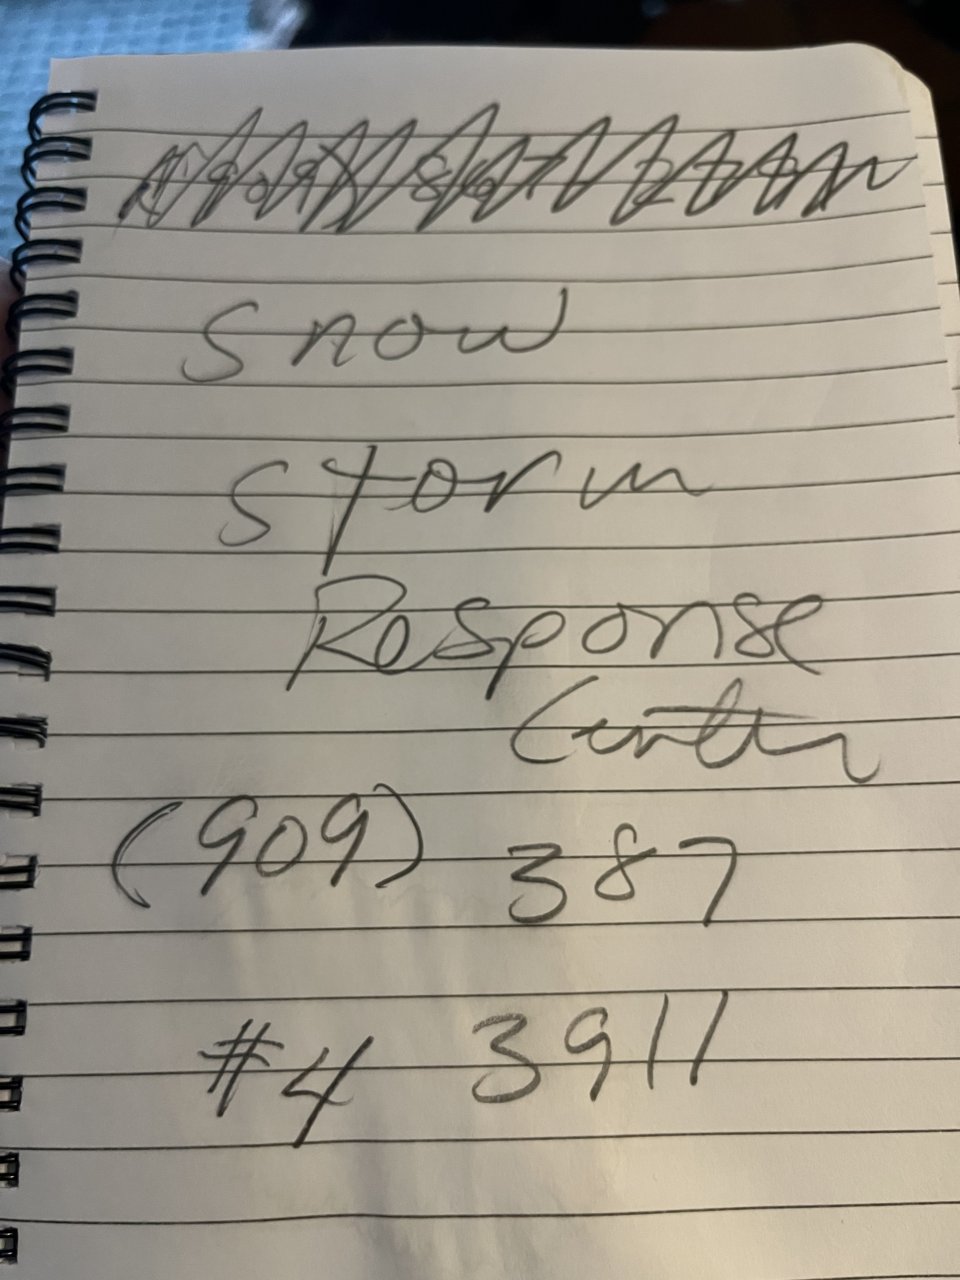 Snow
Storm
Response
Center
(909) 387
#4 3911